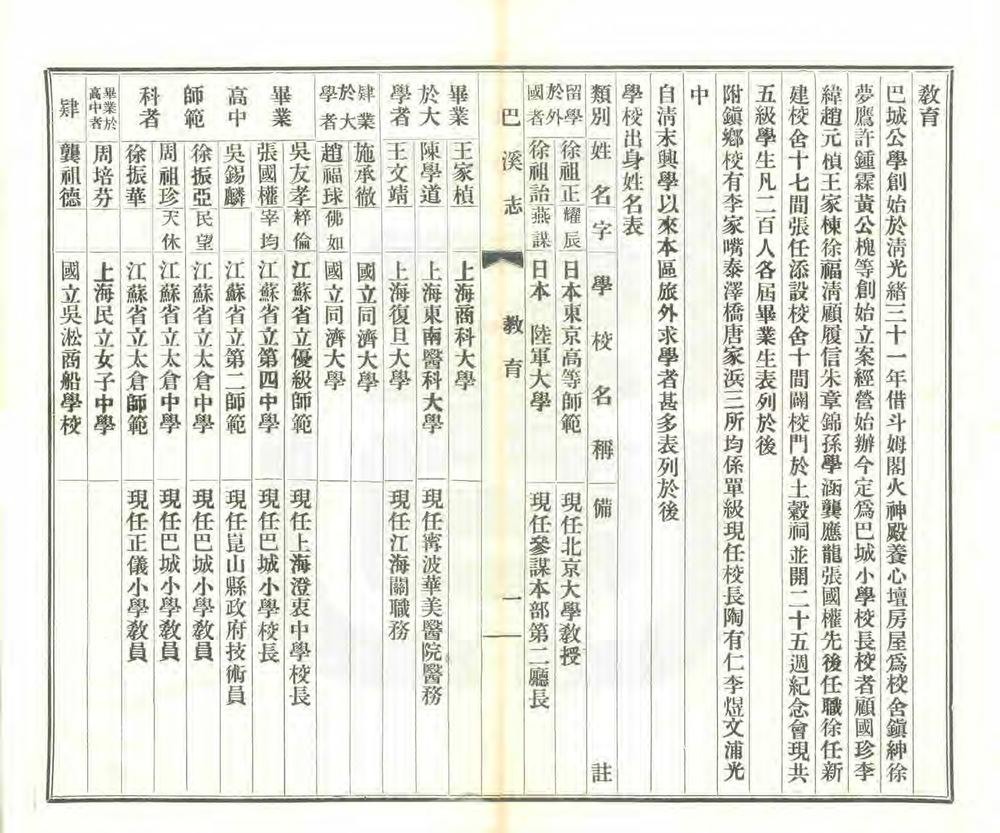 教育
巴城公學創始於清光緒三十一年借斗姆閣火神殿養心壇房屋爲校舍鎭紳徐
夢鷹許鍾霖黃公槐等創始立案經營始辦今定爲巴城小學校長校者顧國珍李
緯趙元楨王家棟徐福清顧履信朱章錦孫學涵龔應龍張國權先後任職徐任新
建校舍十七間張任添設校舍十間闢校門於土穀祠並開二十五週紀念會現共
五級學生凡二百人各屆畢業生表列於後
附鎭鄉校有李家嘴泰澤橋唐家浜三所均係單級現任校長陶有仁李煜文浦光
中
自淸末興學以來本區旅外求學者甚多表列於後
學校出身姓名表
類別 姓名 字 學校名稱 備註
留學於外國者 徐祖正 耀辰 日本東京高等師範 現任北京大學教授
徐祖詒 燕謀 日本 陸軍大學 現任參謀本部第二廳長
巴溪志 教育 一
畢業於大學者 王家楨 上海商科大學
陳學道 上海東南醫科大學 現任寗波華美醫院醫務
王文靖 上海復旦大學 現任江海關職務
肄業於大學者 施承徹 國立同濟大學
趙福球 佛如 國立同濟大學
畢業高中師範科者 吳友孝 梓倫 江蘇省立優級師範 現任上海澄衷中學校長
張國權 宰均 江蘇省立第四中學 現任巴城小學校長
吳錫麟 江蘇省立第二師範 現任崑山縣政府技術員
徐振亞 民望 江蘇省立太倉中學 現任巴城小學敎員
周祖珍 天休 江蘇省立太倉中學 現任巴城小學敎員
徐振華 江蘇省立太倉師範 現任正儀小學敎員
畢業於高中者 周培芬 上海民立女子中學
肄 龔祖德 國立吳淞商船學校